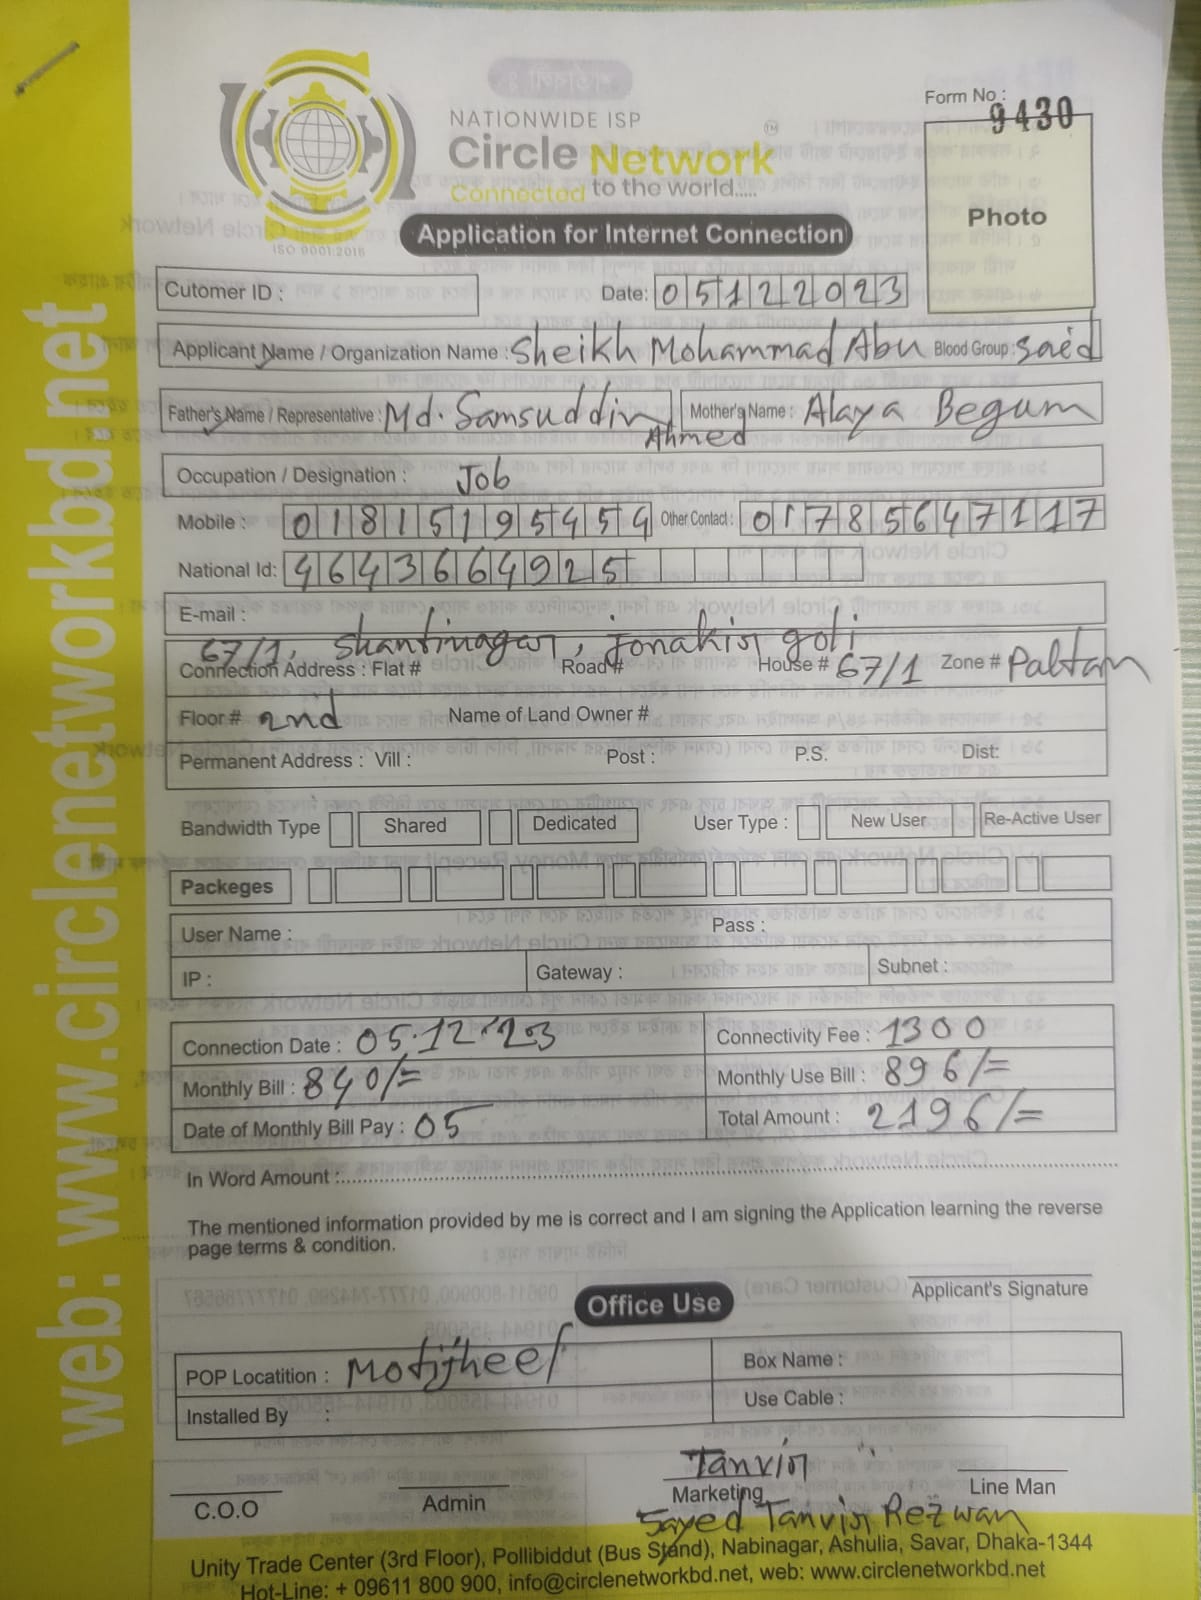 web: www.circlenetworkbd.net
Form No :
9430
NATIONWIDE ISP
Circle Network TM
Connected to the world.....
ISO 9001:2015
Application for Internet Connection
Photo
Cutomer ID :
Date: 05122023
Applicant Name / Organization Name : Sheikh Mohammad Abu Blood Group : Saéd
Father's Name / Representative : Md. Samsuddin Mother's Name : Alaya Begum
Ahmed
Occupation / Designation : Job
Mobile : 01815195454 Other Contact : 01785647117
National Id: 4643664925
E-mail :
67/1, Shantinagar, Jonakir goli
Connection Address : Flat # Road # House # 67/1 Zone # Paltan
Floor # 2nd Name of Land Owner #
Permanent Address : Vill : Post : P.S. Dist:
Bandwidth Type Shared Dedicated User Type : New User Re-Active User
Packeges
User Name : Pass :
IP : Gateway : Subnet :
Connection Date : 05.12.23 Connectivity Fee : 1300
Monthly Bill : 840/= Monthly Use Bill : 896/=
Date of Monthly Bill Pay : 05 Total Amount : 2196/=
In Word Amount :
The mentioned information provided by me is correct and I am signing the Application learning the reverse
page terms & condition.
Applicant's Signature
Office Use
POP Locatition : Motijheel Box Name :
Installed By : Use Cable :
Tanvir
C.O.O Admin Marketing Line Man
Sayed Tanvir Rezwan
Unity Trade Center (3rd Floor), Pollibiddut (Bus Stand), Nabinagar, Ashulia, Savar, Dhaka-1344
Hot-Line: + 09611 800 900, info@circlenetworkbd.net, web: www.circlenetworkbd.net